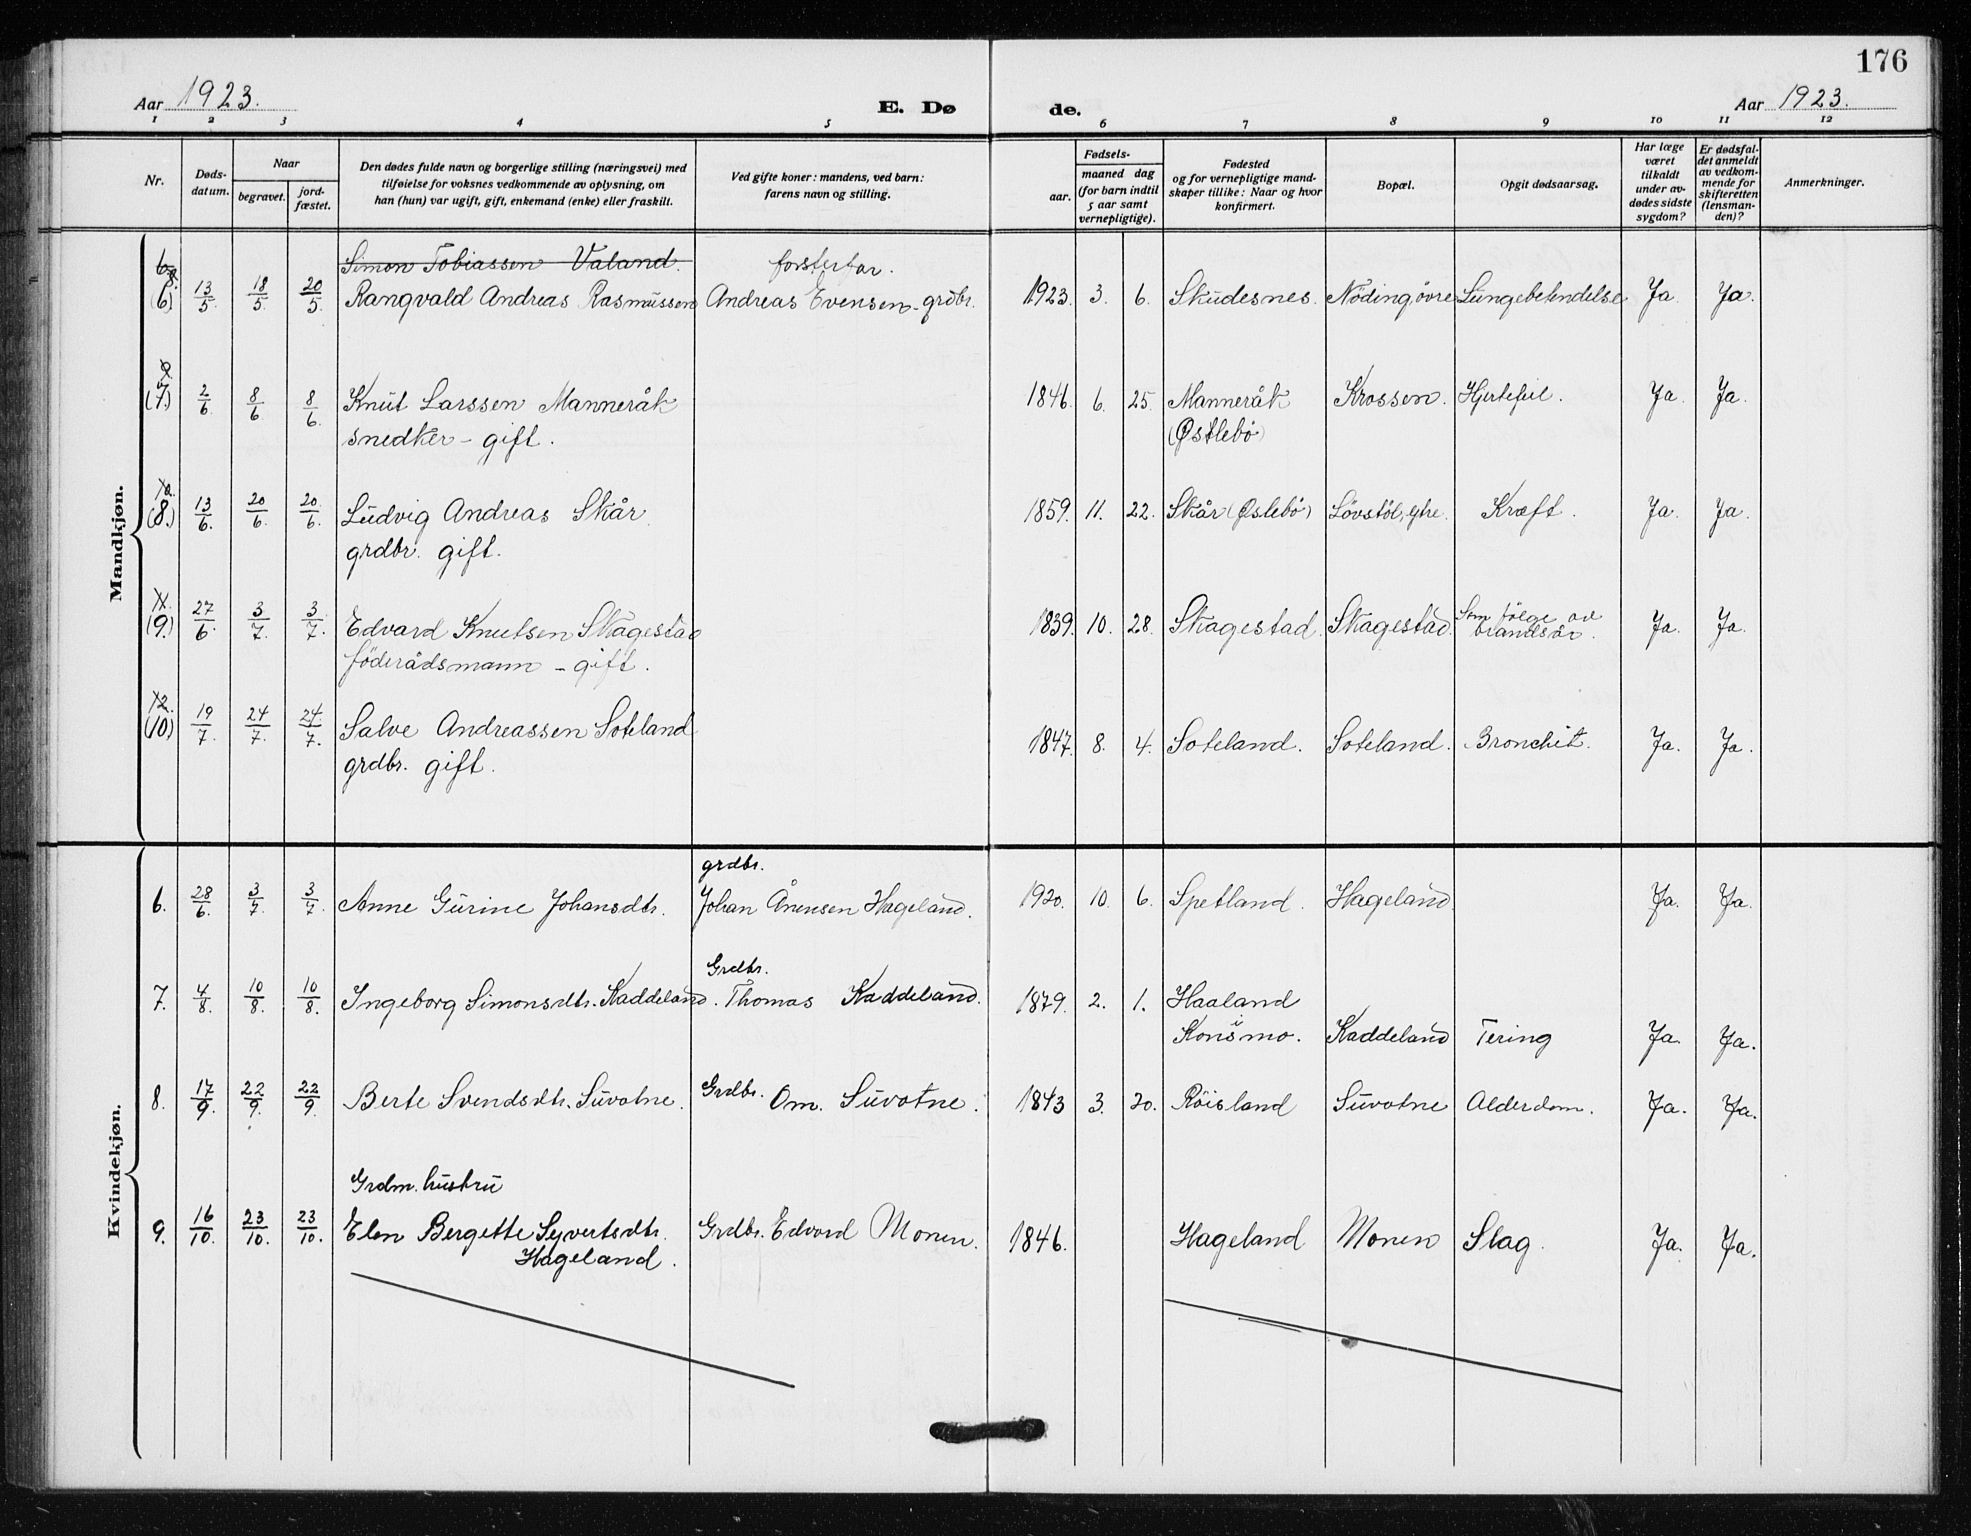 176
Aar 1923.
E. Dø de.
Aar 1923.
1 2 3 4 5 6 7 8 9 10 11 12
Nr.
Døds-
datum.
Naar
begravet.
jord-
fæstet.
Den dødes fulde navn og borgerlige stilling (næringsvei) med
tilføielse for voksnes vedkommende av oplysning, om
han (hun) var ugift, gift, enkemand (enke) eller fraskilt.
Ved gifte koner: mandens, ved barn:
farens navn og stilling.
Fødsels-
aar.
maaned dag
(for barn indtil
5 aar samt
vernepligtige).
Fødested
og for vernepligtige mand-
skaper tillike: Naar og hvor
konfirmert.
Bopæl.
Opgit dødsaarsag.
Har læge
været
tilkaldt
under av-
dødes sidste
sygdom?
Er dødsfal-
det anmeldt
av vedkom-
mende for
skifteretten
(lensman-
den)?
Anmerkninger.
Mandkjøn.
Simon Tobiassen Valand. fosterfar.
8. (6) 13/5 18/5 20/5 Rangvald Andreas Rasmussen Andreas Evensen - grdbr. 1923. 3. 6. Skudesnes. Nöding övre Lungebetendelse Ja. Ja.
9. (7.) 2/6 8/6 8/6. Knut Larssen Manneråk 1846. 6. 25. Manneråk Krossen. Hjertefeil. Ja. Ja.
snedker - gift. (Østlebö)
10. (8.) 13/6. 20/6. 20/6. Ludvig Andreas Skår 1859. 11. 22. Skår (Øslebö) Lövstöl, ytre. Kræft. Ja. Ja.
grdbr. gift.
11. (9.) 27/6. 3/7. 3/7. Edvard Knutsen Skagestad 1839. 10. 28. Skagestad. Skagestad. Som fölge av Ja. Ja.
föderådsmann - gift. brandsår.
12. (10) 19/7 24/7. 24/7. Salve Andreassen Soteland 1847. 8. 4. Soteland. Soteland. Bronchit. Ja. Ja.
grdbr. gift.
Kvindekjøn.
grdbr.
6. 28/6. 3/7. 3/7. Anne Gurine Johansdtr. Johan Ånensen Hageland. 1920. 10. 6. Spetland. Hageland. Ja. Ja.
Grdbr.
7. 4/8. 10/8. 10/8. Ingeborg Simonsdtr. Kaddeland. Thomas Kaddeland. 1879. 2. 1. Haaland
i
Konsmo. Kaddeland Tering Ja. Ja.
8. 17/9. 22/9. 22/9. Berte Svendsdtr. Suvatne. Grdbr. Om. Suvatne. 1843 3. 20. Röisland Suvatne Alderdom. Ja. Ja.
Grdm. hustru
9. 16/10. 23/10. 23/10. Elen Bergette Syvertsdtr. Grdbr. Edvard Monen. 1846. Hageland Monen Slag. Ja. Ja.
Hageland.